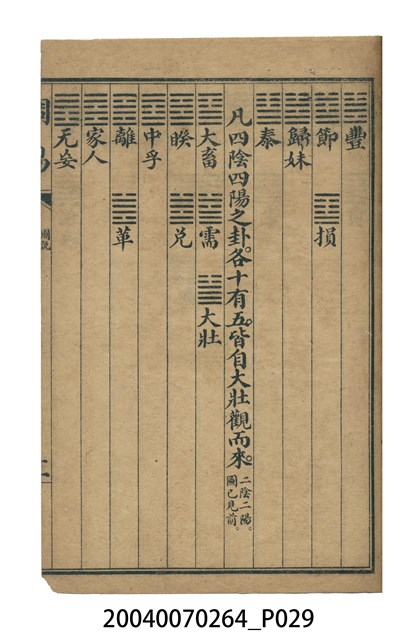 豐
節 損
歸妹
泰
凡四陰四陽之卦。各十有五。皆自大壯觀而來。二陰二陽。圖已見前。
大畜 需 大壯
睽 兌
中孚
離 革
家人
无妄
圖說
20040070264_P029